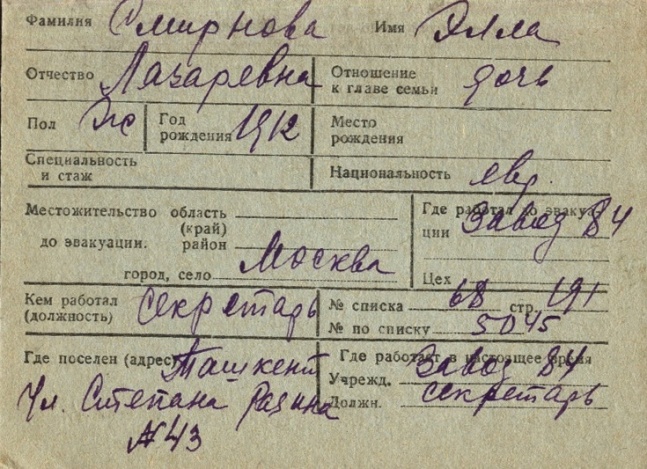 Фамилия Смирнова Имя Элла
Отчество Лазаревна Отношение к главе семьи дочь
Пол Ж Год рождения 1912 Место рождения
Специальность и стаж Национальность евр.
Местожительство область (край)
до эвакуации. район
город, село Москва
Где работал до эвакуации Завод 84
Цех
Кем работал (должность) секретарь
№ списка 68 стр. 191
№ по списку 5045
Где поселен (адрес) Ташкент
Ул. Степана Разина
№ 43
Где работает в настоящее время
Учрежд. Завод 84
Должн. секретарь